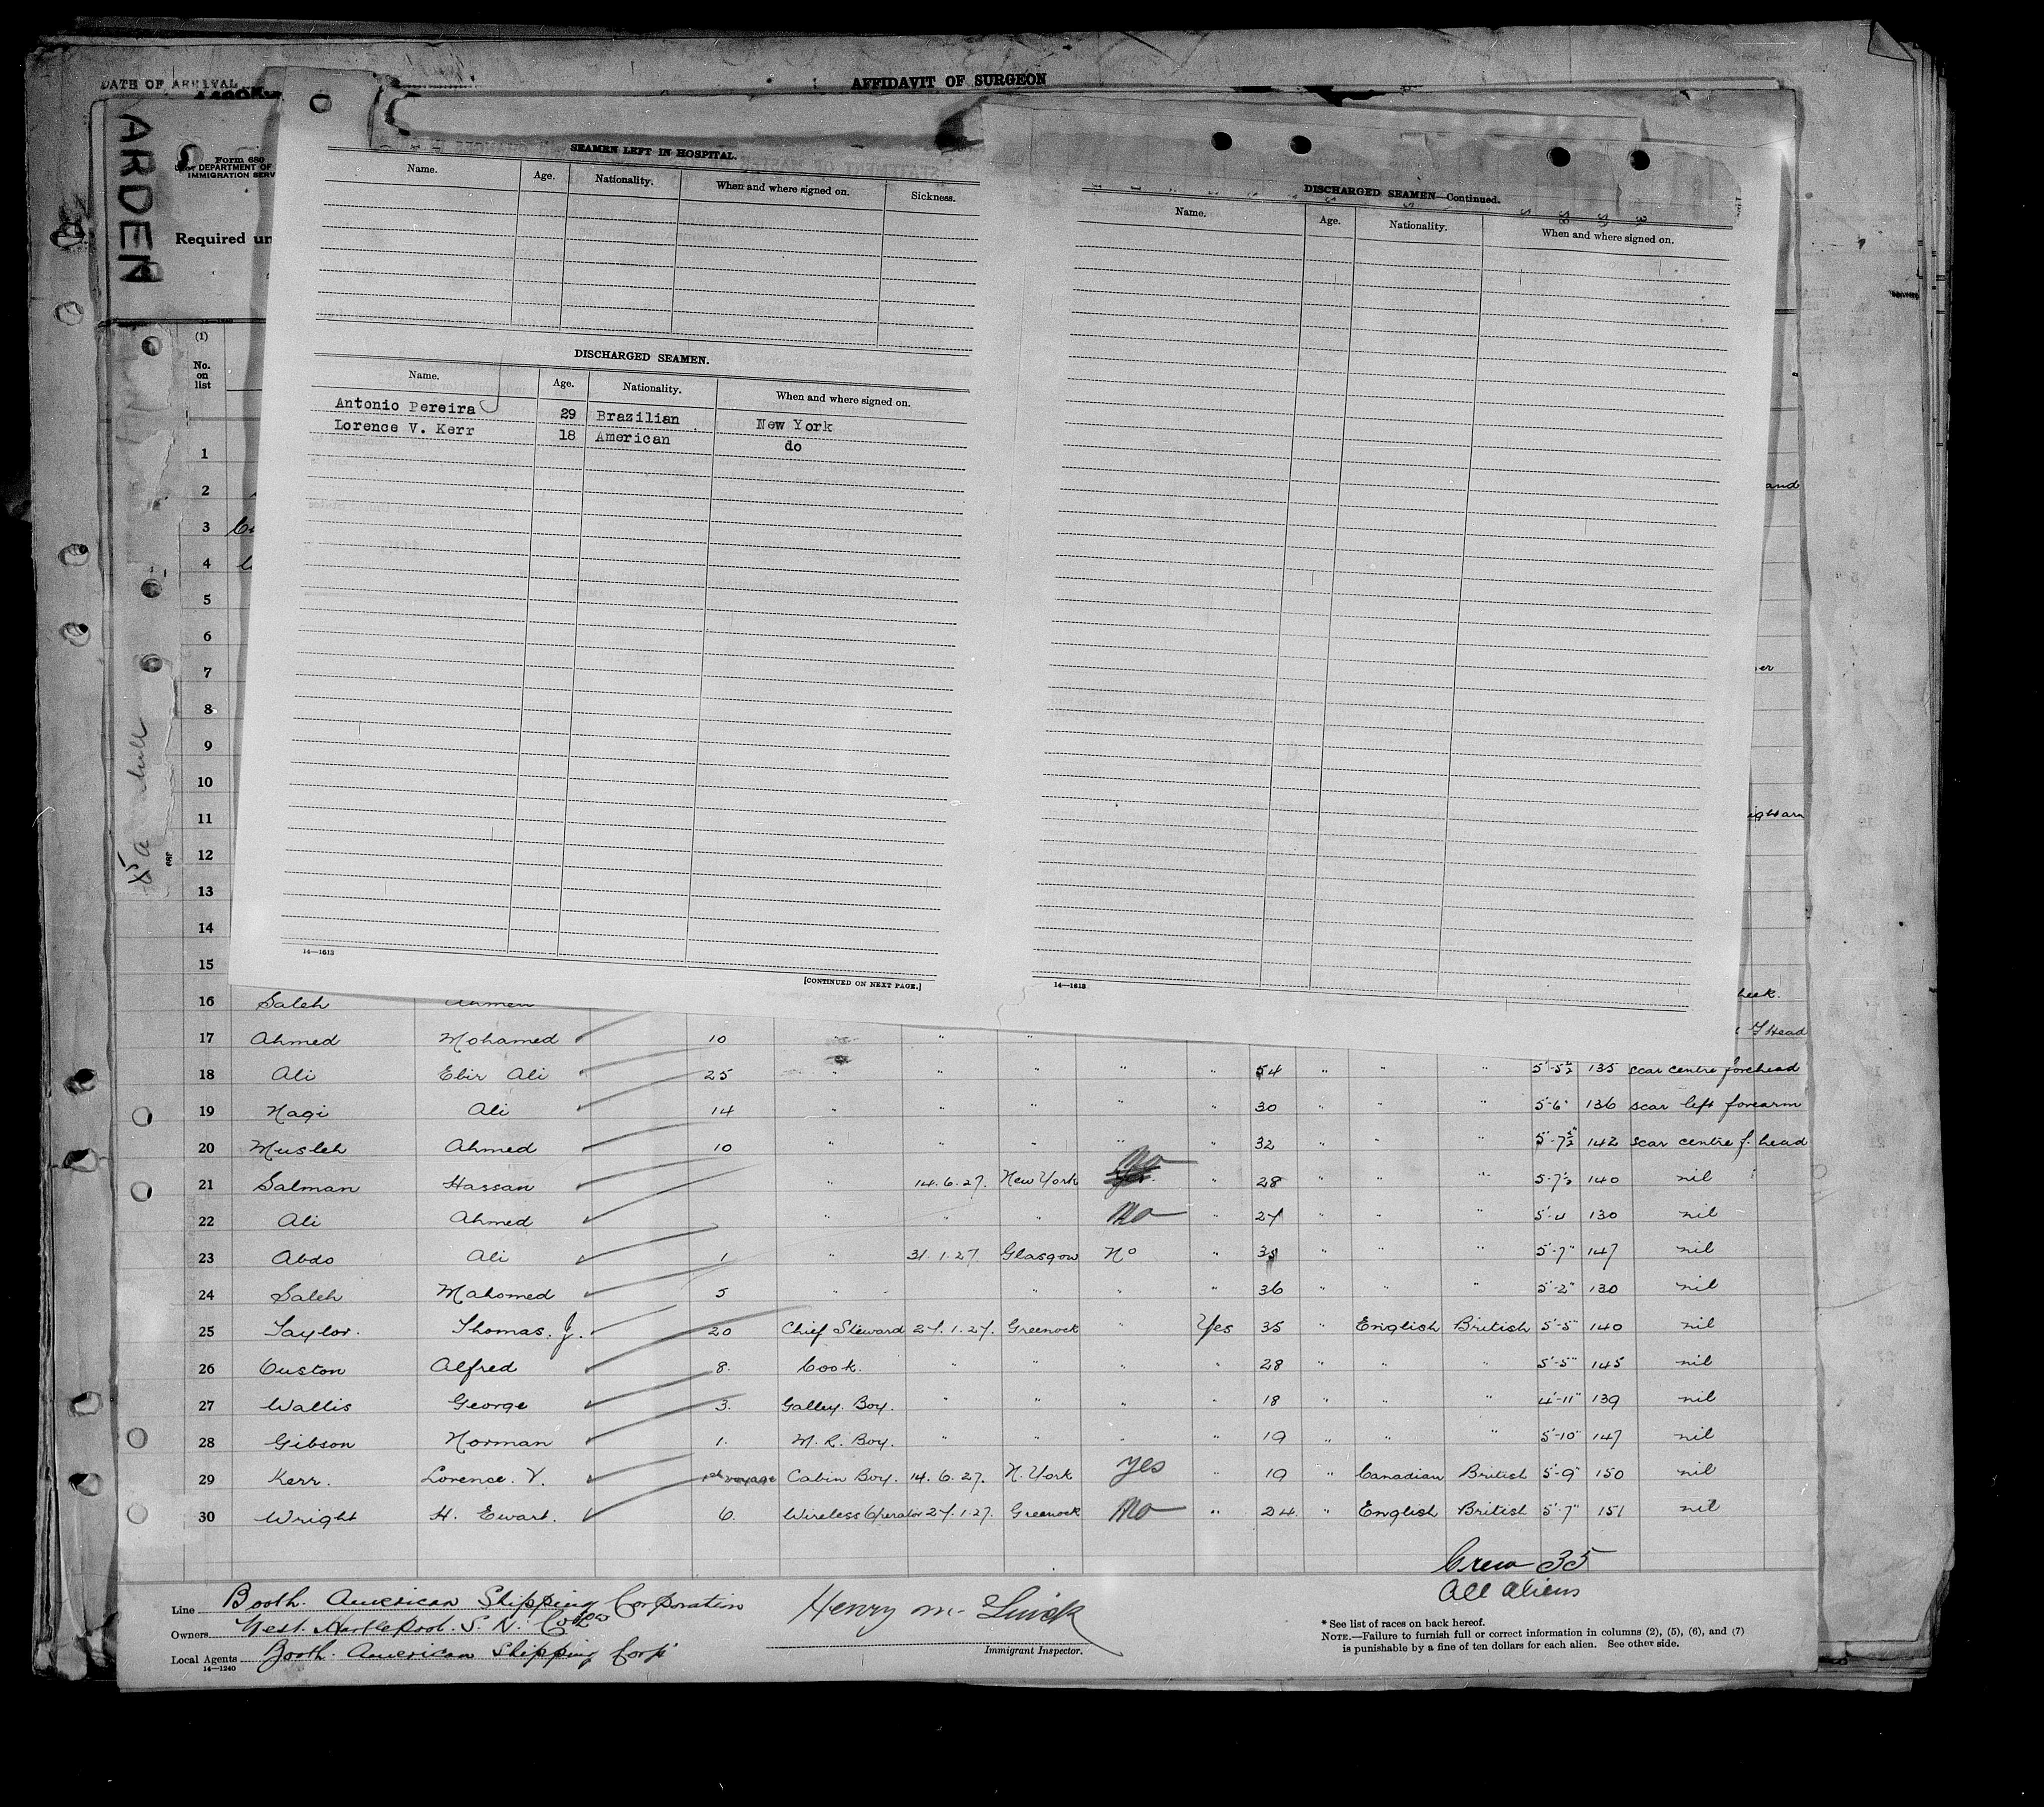 DATE OF ARRIVAL
AFFIDAVIT OF SURGEON
ARDEN
Form 680
DEPARTMENT OF
IMMIGRATION SERV
Required un
(1)
No. on list
SEAMEN LEFT IN HOSPITAL.
Name. Age. Nationality. When and where signed on. Sickness.
DISCHARGED SEAMEN.
Name. Age. Nationality. When and where signed on.
Antonio Pereira 29 Brazilian New York
Lorence V. Kerr 18 American do
14—1613
[CONTINUED ON NEXT PAGE.]
DISCHARGED SEAMEN—Continued.
Name. Age. Nationality. When and where signed on.
14—1613
1
2 and
3
4
5
6
7 er
8
9
10
11
12
13
14
15
16 Saleh Ahmen heek.
17 Ahmed Mohamed 10 " " " Head
18 Ali Ebir Ali 25 " " " " " 54 " " " 5'-5½ 135 scar centre forehead
19 Nagi Ali 14 " " " " " 30 " " " 5'-6" 136 scar left forearm
20 Musleh Ahmed 10 " " " " " 32 " " " 5'-7½" 142 scar centre f. head
21 Salman Hassan " 14.6.27. New York No " 28 " " " 5-7½ 140 nil
22 Ali Ahmed " " " No " 27 " " " 5'-4 130 nil
23 Abdo Ali 1 " 31.1.27. Glasgow No " 35 " " " 5'-7" 147 nil
24 Saleh Mahomed 5 " " " " " 36 " " " 5'-2" 130 nil
25 Taylor. Thomas. J. 20 Chief Steward 27.1.27. Greenock " Yes 35 " English British 5'-5" 140 nil
26 Ouston Alfred 8. Cook. " " " " 28 " " " 5'-5" 145 nil
27 Wallis George 3. Galley. Boy. " " " " 18 " " " 4'-11" 139 nil
28 Gibson Norman 1. M. R. Boy. " " " " 19 " " " 5'-10" 147 nil
29 Kerr. Lorence. V. 1st voyage Cabin Boy. 14.6.27. N. York Yes " 19 " Canadian British 5'-9" 150 nil
30 Wright H. Ewart. 6. Wireless Operator 27.1.27. Greenock No " 24. " English British 5'-7" 151 nil
Crew 35
All aliens
Line Booth. American Shipping Corporation
Owners West. Hartlepool. S. N. Co
Local Agents Booth. American Shipping Corp
14—1240
Henry M.
Immigrant Inspector.
* See list of races on back hereof.
NOTE.—Failure to furnish full or correct information in columns (2), (5), (6), and (7)
is punishable by a fine of ten dollars for each alien. See other side.